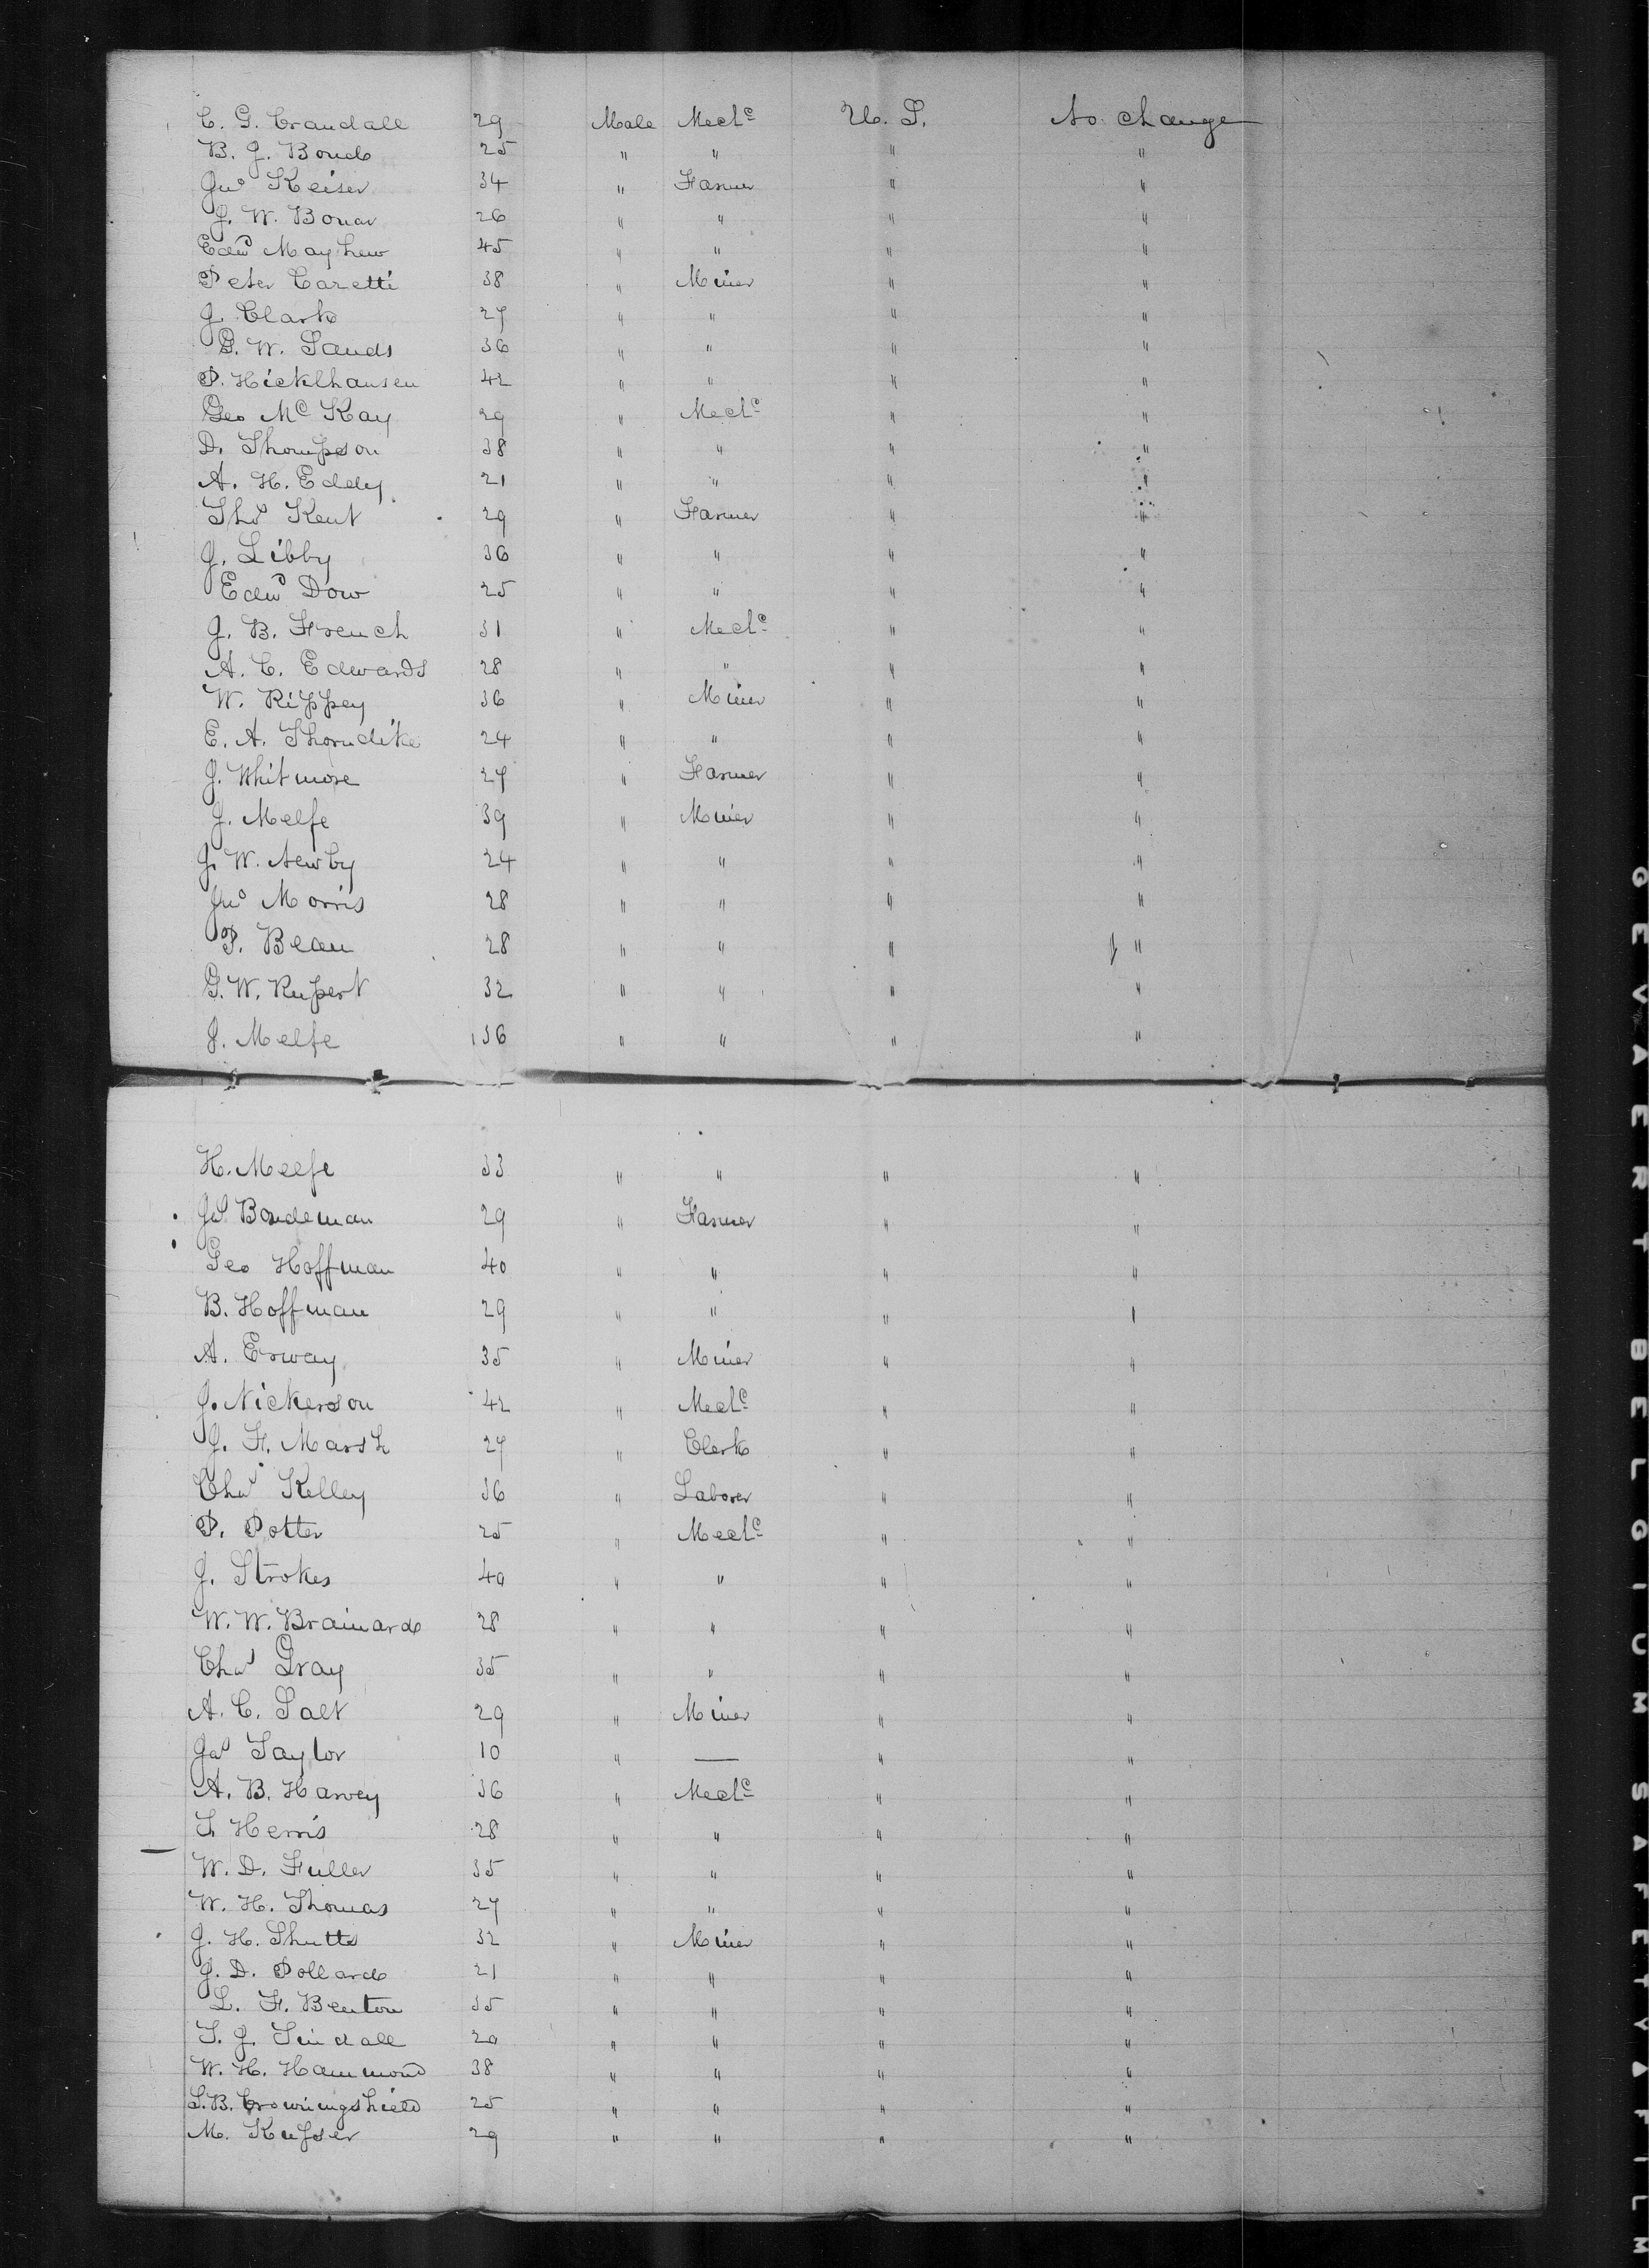 C. G. Crandall 29 Male Mech^c U. S. No change
B. J. Bond 25 " " " "
Jn^o Keiser 34 " Farmer " "
J. W. Bonar 26 " " " "
Edw^d Mayhew 45 " " " "
Peter Caretti 38 " Miner " "
J. Clark 27 " " " "
G. W. Sands 36 " " " "
P. Hicklhausen 42 " " " "
Geo Mc Kay 29 " Mech^c " "
D. Thompson 38 " " " "
A. H. Eddy 21 " " " "
Tho^s Kent 29 " Farmer " "
J. Libby 36 " " " "
Edw^d Dow 25 " " " "
J. B. French 31 " Mech^c " "
A. C. Edwards 28 " " " "
W. Rippey 36 " Miner " "
E. A. Thorndike 24 " " " "
J. Whitmore 27 " Farmer " "
J. Melfe 39 " Miner " "
J. W. Newby 24 " " " "
Jn^o Morris 28 " " " "
P. Bean 28 " " " "
G. W. Rupert 32 " " " "
J. Melfe 36 " " " "
H. Melfe 33 " " " "
J^s Bordeman 29 " Farmer " "
Geo Hoffman 40 " " " "
B. Hoffman 29 " " " "
A. Erway 35 " Miner " "
J. Nickerson 42 " Mech^c " "
J. F. Marsh 27 " Clerk " "
Cha^s Kelley 36 " Laborer " "
P. Potter 25 " Mech^c " "
J. Strokes 40 " " " "
W. W. Brainard 28 " " " "
Cha^s Gray 35 " " " "
A. C. Salt 29 " Miner " "
Ja^s Taylor 10 " — " "
A. B. Harvey 36 " Mech^c " "
T. Herris 28 " " " "
W. D. Fuller 35 " " " "
W. H. Thomas 27 " " " "
J. H. Shutts 32 " Miner " "
J. D. Pollard 21 " " " "
L. F. Benton 35 " " " "
T. J. Tindall 20 " " " "
W. H. Hammond 38 " " " "
S. B. Crowningshield 25 " " " "
M. 29 " " " "
GEVAERT BELGIUM SAFETY FILM